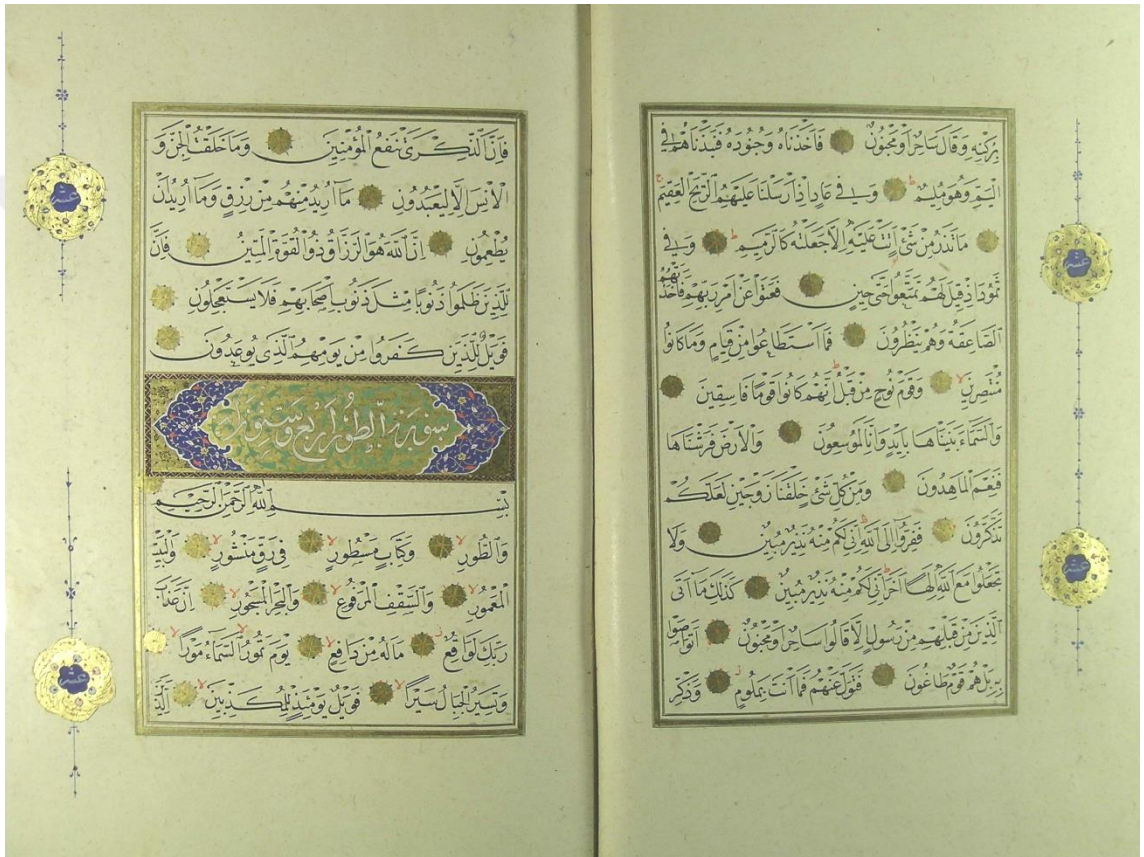 بِرُكْنِهِ وَقَالَ سَاحِرٌ اَوْ مَجْنُونٌ فَاَخَذْنَاهُ وَجُنُودَهُ فَنَبَذْنَاهُمْ فِي
الْيَمِّ وَهُوَ مُلِيمٌ وَفِي عَادٍ اِذْ اَرْسَلْنَا عَلَيْهِمُ الرِّيحَ الْعَقِيمَ
مَا تَذَرُ مِنْ شَيْءٍ اَتَتْ عَلَيْهِ اِلَّا جَعَلَتْهُ كَالرَّمِيمِ وَفِي
ثَمُودَ اِذْ قِيلَ لَهُمْ تَمَتَّعُوا حَتَّى حِينٍ فَعَتَوْا عَنْ اَمْرِ رَبِّهِمْ فَاَخَذَتْهُمُ
الصَّاعِقَةُ وَهُمْ يَنْظُرُونَ فَمَا اسْتَطَاعُوا مِنْ قِيَامٍ وَمَا كَانُوا
مُنْتَصِرِينَ وَقَوْمَ نُوحٍ مِنْ قَبْلُ اِنَّهُمْ كَانُوا قَوْمًا فَاسِقِينَ
وَالسَّمَاءَ بَنَيْنَاهَا بِاَيْدٍ وَاِنَّا لَمُوسِعُونَ وَالْاَرْضَ فَرَشْنَاهَا
فَنِعْمَ الْمَاهِدُونَ وَمِنْ كُلِّ شَيْءٍ خَلَقْنَا زَوْجَيْنِ لَعَلَّكُمْ
تَذَكَّرُونَ فَفِرُّوا اِلَى اللّٰهِ اِنِّي لَكُمْ مِنْهُ نَذِيرٌ مُبِينٌ وَلَا
تَجْعَلُوا مَعَ اللّٰهِ اِلٰهًا اٰخَرَ اِنِّي لَكُمْ مِنْهُ نَذِيرٌ مُبِينٌ كَذٰلِكَ مَا اَتَى
الَّذِينَ مِنْ قَبْلِهِمْ مِنْ رَسُولٍ اِلَّا قَالُوا سَاحِرٌ اَوْ مَجْنُونٌ اَتَوَاصَوْا
بِهِ بَلْ هُمْ قَوْمٌ طَاغُونَ فَتَوَلَّ عَنْهُمْ فَمَا اَنْتَ بِمَلُومٍ وَذَكِّرْ
عشر
عشر
فَاِنَّ الذِّكْرَى تَنْفَعُ الْمُؤْمِنِينَ وَمَا خَلَقْتُ الْجِنَّ وَ
الْاِنْسَ اِلَّا لِيَعْبُدُونِ مَا اُرِيدُ مِنْهُمْ مِنْ رِزْقٍ وَمَا اُرِيدُ اَنْ
يُطْعِمُونِ اِنَّ اللّٰهَ هُوَ الرَّزَّاقُ ذُو الْقُوَّةِ الْمَتِينُ فَاِنَّ
لِلَّذِينَ ظَلَمُوا ذَنُوبًا مِثْلَ ذَنُوبِ اَصْحَابِهِمْ فَلَا يَسْتَعْجِلُونِ
فَوَيْلٌ لِلَّذِينَ كَفَرُوا مِنْ يَوْمِهِمُ الَّذِي يُوعَدُونَ
سورة الطور اربع وستون اية
بِسْمِ اللّٰهِ الرَّحْمٰنِ الرَّحِيمِ
وَالطُّورِ وَكِتَابٍ مَسْطُورٍ فِي رَقٍّ مَنْشُورٍ وَالْبَيْتِ
الْمَعْمُورِ وَالسَّقْفِ الْمَرْفُوعِ وَالْبَحْرِ الْمَسْجُورِ اِنَّ عَذَابَ
رَبِّكَ لَوَاقِعٌ مَا لَهُ مِنْ دَافِعٍ يَوْمَ تَمُورُ السَّمَاءُ مَوْرًا
وَتَسِيرُ الْجِبَالُ سَيْرًا فَوَيْلٌ يَوْمَئِذٍ لِلْمُكَذِّبِينَ اَلَّذِينَ
عشر
عشر